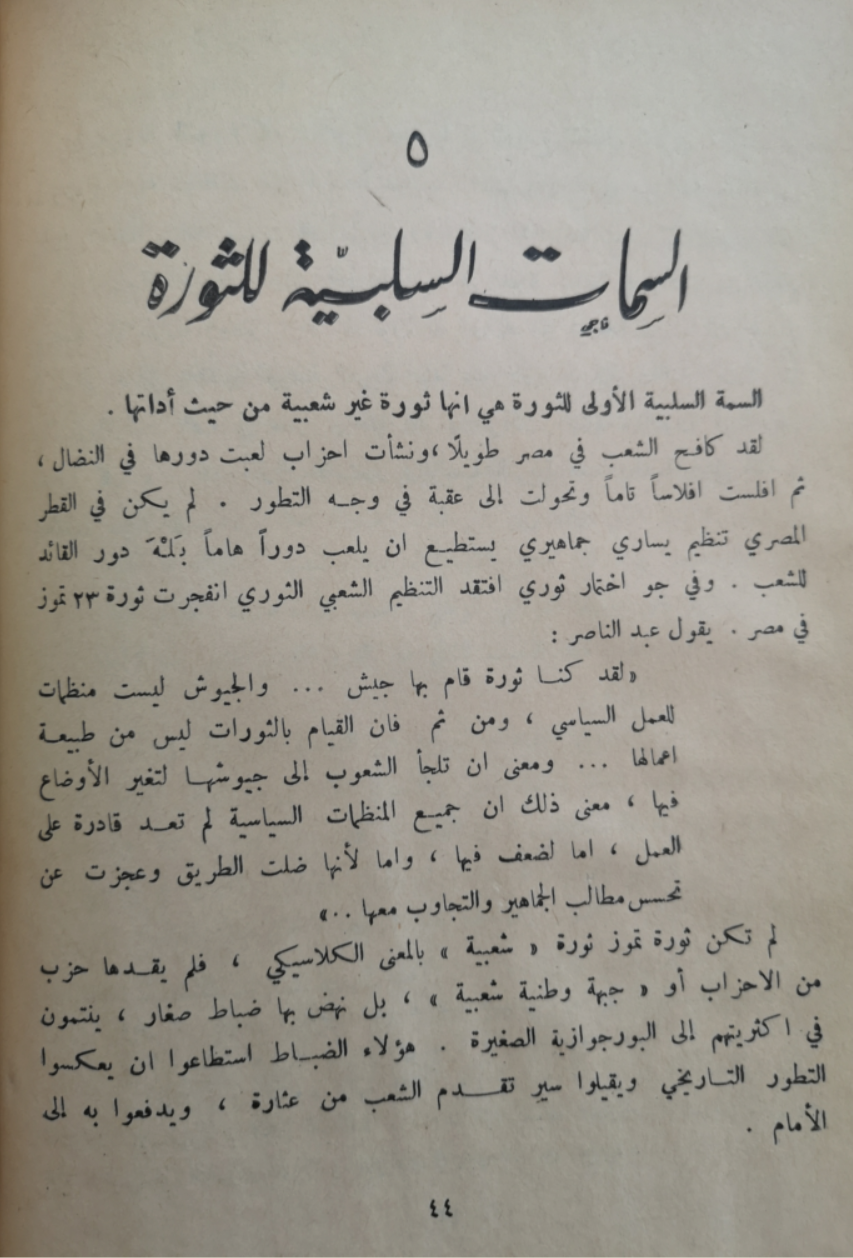 ٥
السِمات السِلبيّة للثورة
السمة السلبية الأولى للثورة هي انها ثورة غير شعبية من حيث أداتها .
لقد كافح الشعب في مصر طويلًا ،ونشأت احزاب لعبت دورها في النضال ،
ثم افلست افلاساً تاماً وتحولت إلى عقبة في وجه التطور . لم يكن في القطر
المصري تنظيم يساري جماهيري يستطيع ان يلعب دوراً هاماً بَلْهَ دور القائد
للشعب . وفي جو اختمار ثوري افتقد التنظيم الشعبي الثوري انفجرت ثورة ٢٣ تموز
في مصر . يقول عبد الناصر :
«لقد كنا ثورة قام بها جيش ... والجيوش ليست منظمات
للعمل السياسي ، ومن ثم فان القيام بالثورات ليس من طبيعة
اعمالها ... ومعنى ان تلجأ الشعوب إلى جيوشها لتغير الأوضاع
فيها ، معنى ذلك ان جميع المنظمات السياسية لم تعد قادرة على
العمل ، اما لضعف فيها ، واما لأنها ضلت الطريق وعجزت عن
تحسس مطالب الجماهير والتجاوب معها ..»
لم تكن ثورة تموز ثورة « شعبية » بالمعنى الكلاسيكي ، فلم يقدها حزب
من الاحزاب أو « جبهة وطنية شعبية » ، بل نهض بها ضباط صغار ، ينتمون
في اكثريتهم إلى البورجوازية الصغيرة . هؤلاء الضباط استطاعوا ان يعكسوا
التطور التاريخي ويقيلوا سير تقدم الشعب من عثارة ، ويدفعوا به إلى
الأمام .
٤٤